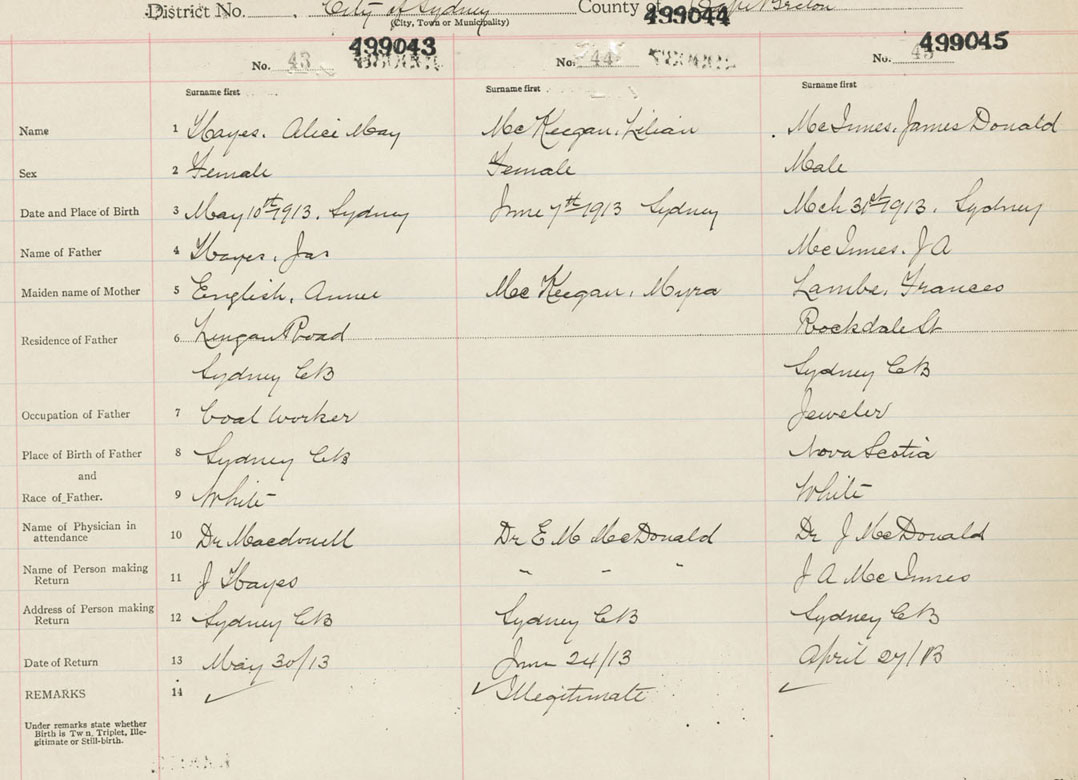 District No. City of Sydney County of Cape Breton
(City, Town or Municipality)
499043 499044 499045
No. 43 No. 44 No. 45
Surname first Surname first Surname first
Name 1 Hayes. Alice May McKeegan, Lilian McInnes, James Donald
Sex 2 Female Female Male
Date and Place of Birth 3 May 10th 1913. Sydney June 7th 1913 Sydney Mch 31st 1913. Sydney
Name of Father 4 Hayes, Jas McInnes. J A
Maiden name of Mother 5 English, Annie McKeegan, Myra Lambe, Frances
Residence of Father 6 Lingan Road Rockdale St
Sydney CB Sydney CB
Occupation of Father 7 Coal Worker Jeweler
Place of Birth of Father 8 Sydney CB Nova Scotia
and
Race of Father. 9 White White
Name of Physician in attendance 10 Dr Macdonell Dr E M McDonald Dr J McDonald
Name of Person making Return 11 J Hayes " " " J A McInnes
Address of Person making Return 12 Sydney CB Sydney CB Sydney CB
Date of Return 13 May 30/13 June 24/13 April 27/13
REMARKS 14 ✓ ✓ Illegitimate ✓
Under remarks state whether
Birth is Twin, Triplet, Ille-
gitimate or Still-birth.